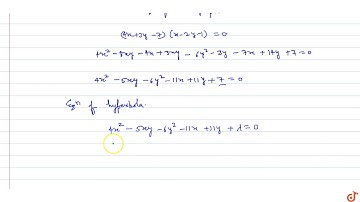 (4x+3y-7) (x-2y-1) = 0
4x² - 8xy - 4x + 3xy - 6y² - 3y - 7x + 14y + 7 = 0
4x² - 5xy - 6y² - 11x + 11y + 7 = 0
Eqn of hyperbola.
4x² - 5xy - 6y² - 11x + 11y + λ = 0